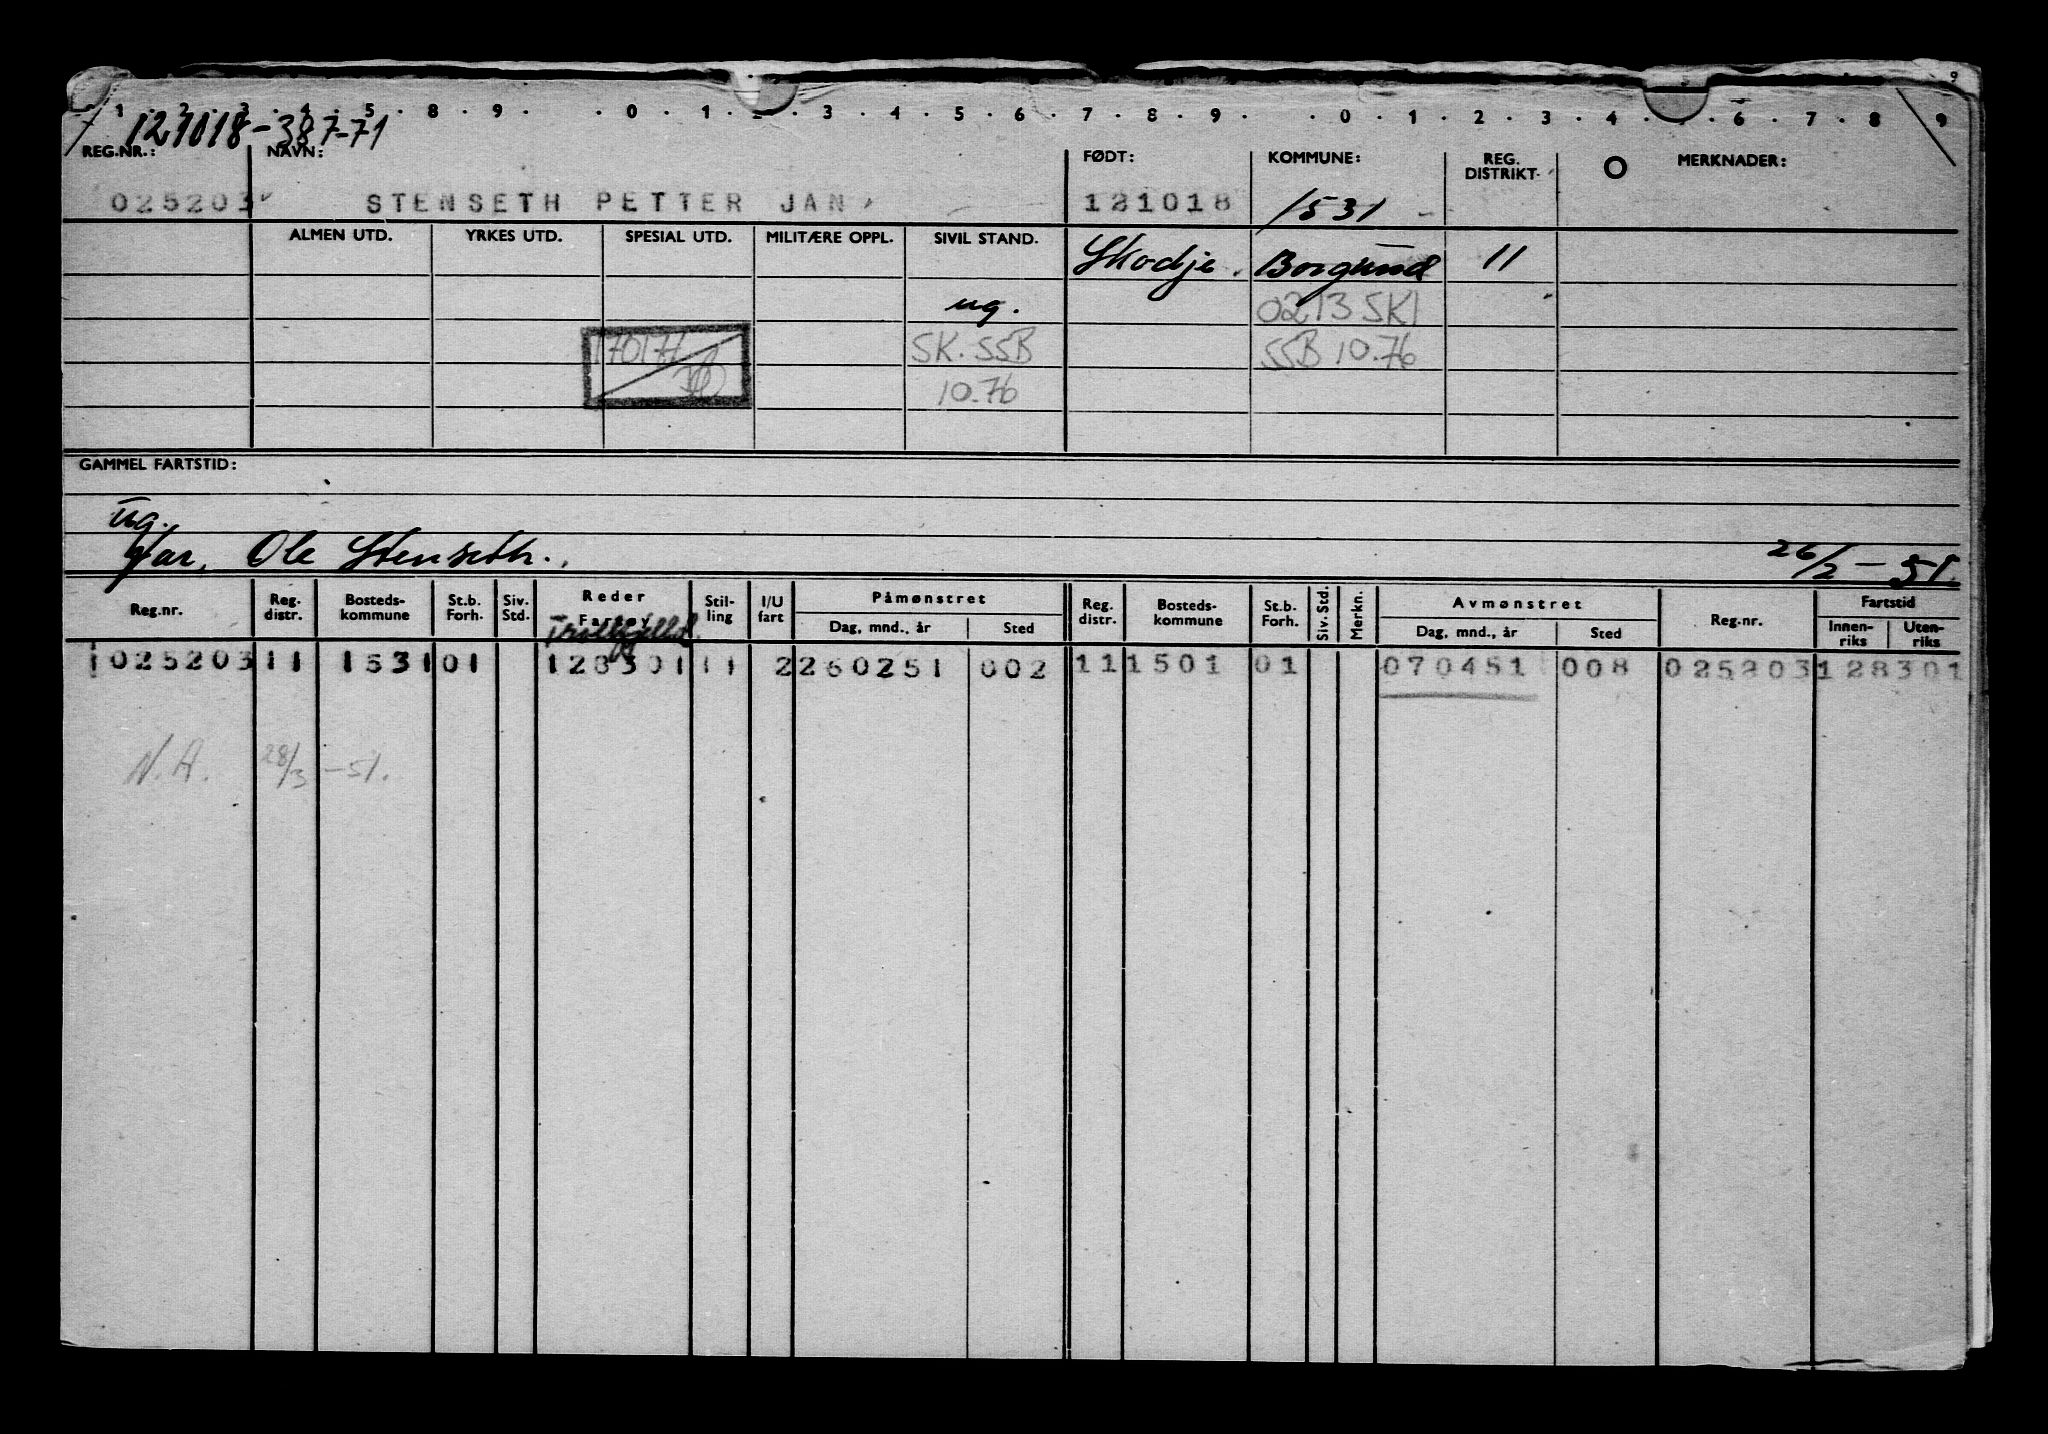 9
1 . 2 . 3 . 4 . 5 . 8 . 9 . . 0 . 1 . 2 . 3 . 4 . 5 . 6 . 7 . 8 . 9 . . 0 . 1 . 2 . 3 . 4 . 5 . 6 . 7 . 8 . 9
121018-387-71
REG.NR.: NAVN: FØDT: KOMMUNE: REG. DISTRIKT. O MERKNADER:
025203 STENSETH PETTER JAN 121018 1531
ALMEN UTD. YRKES UTD. SPESIAL UTD. MILITÆRE OPPL. SIVIL STAND. Skodje. Borgund 11
ug. 0213 SKI
170171 SK. SSB SSB 10.76
10.76
GAMMEL FARTSTID:
ug.
Far, Ole Stenseth. 26/2-51.
Reg.nr. Reg. distr. Bosteds- kommune St.b. Forh. Siv. Std. Reder Fartøy Stil- ling I/U fart Påmønstret Dag, mnd., år Sted Reg. distr. Bosteds- kommune St.b. Forh. Siv. Std. Merkn. Avmønstret Dag, mnd., år Sted Reg.nr. Fartstid Innen- riks Uten- riks
025203 11 1531 01 128301 11 2 260251 002 11 1501 01 070451 008 025203 128301
N.A. 28/3 -51.